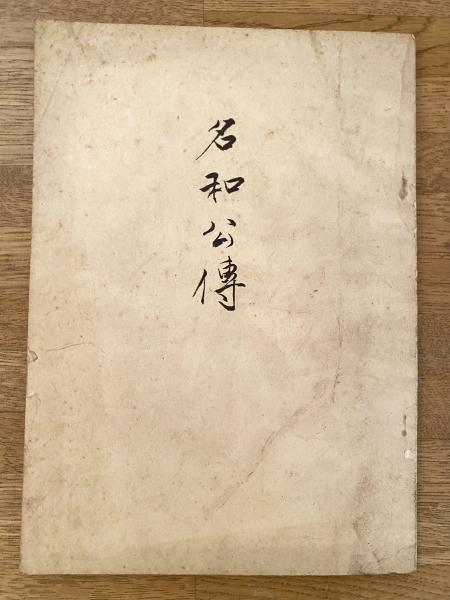 名和公傳